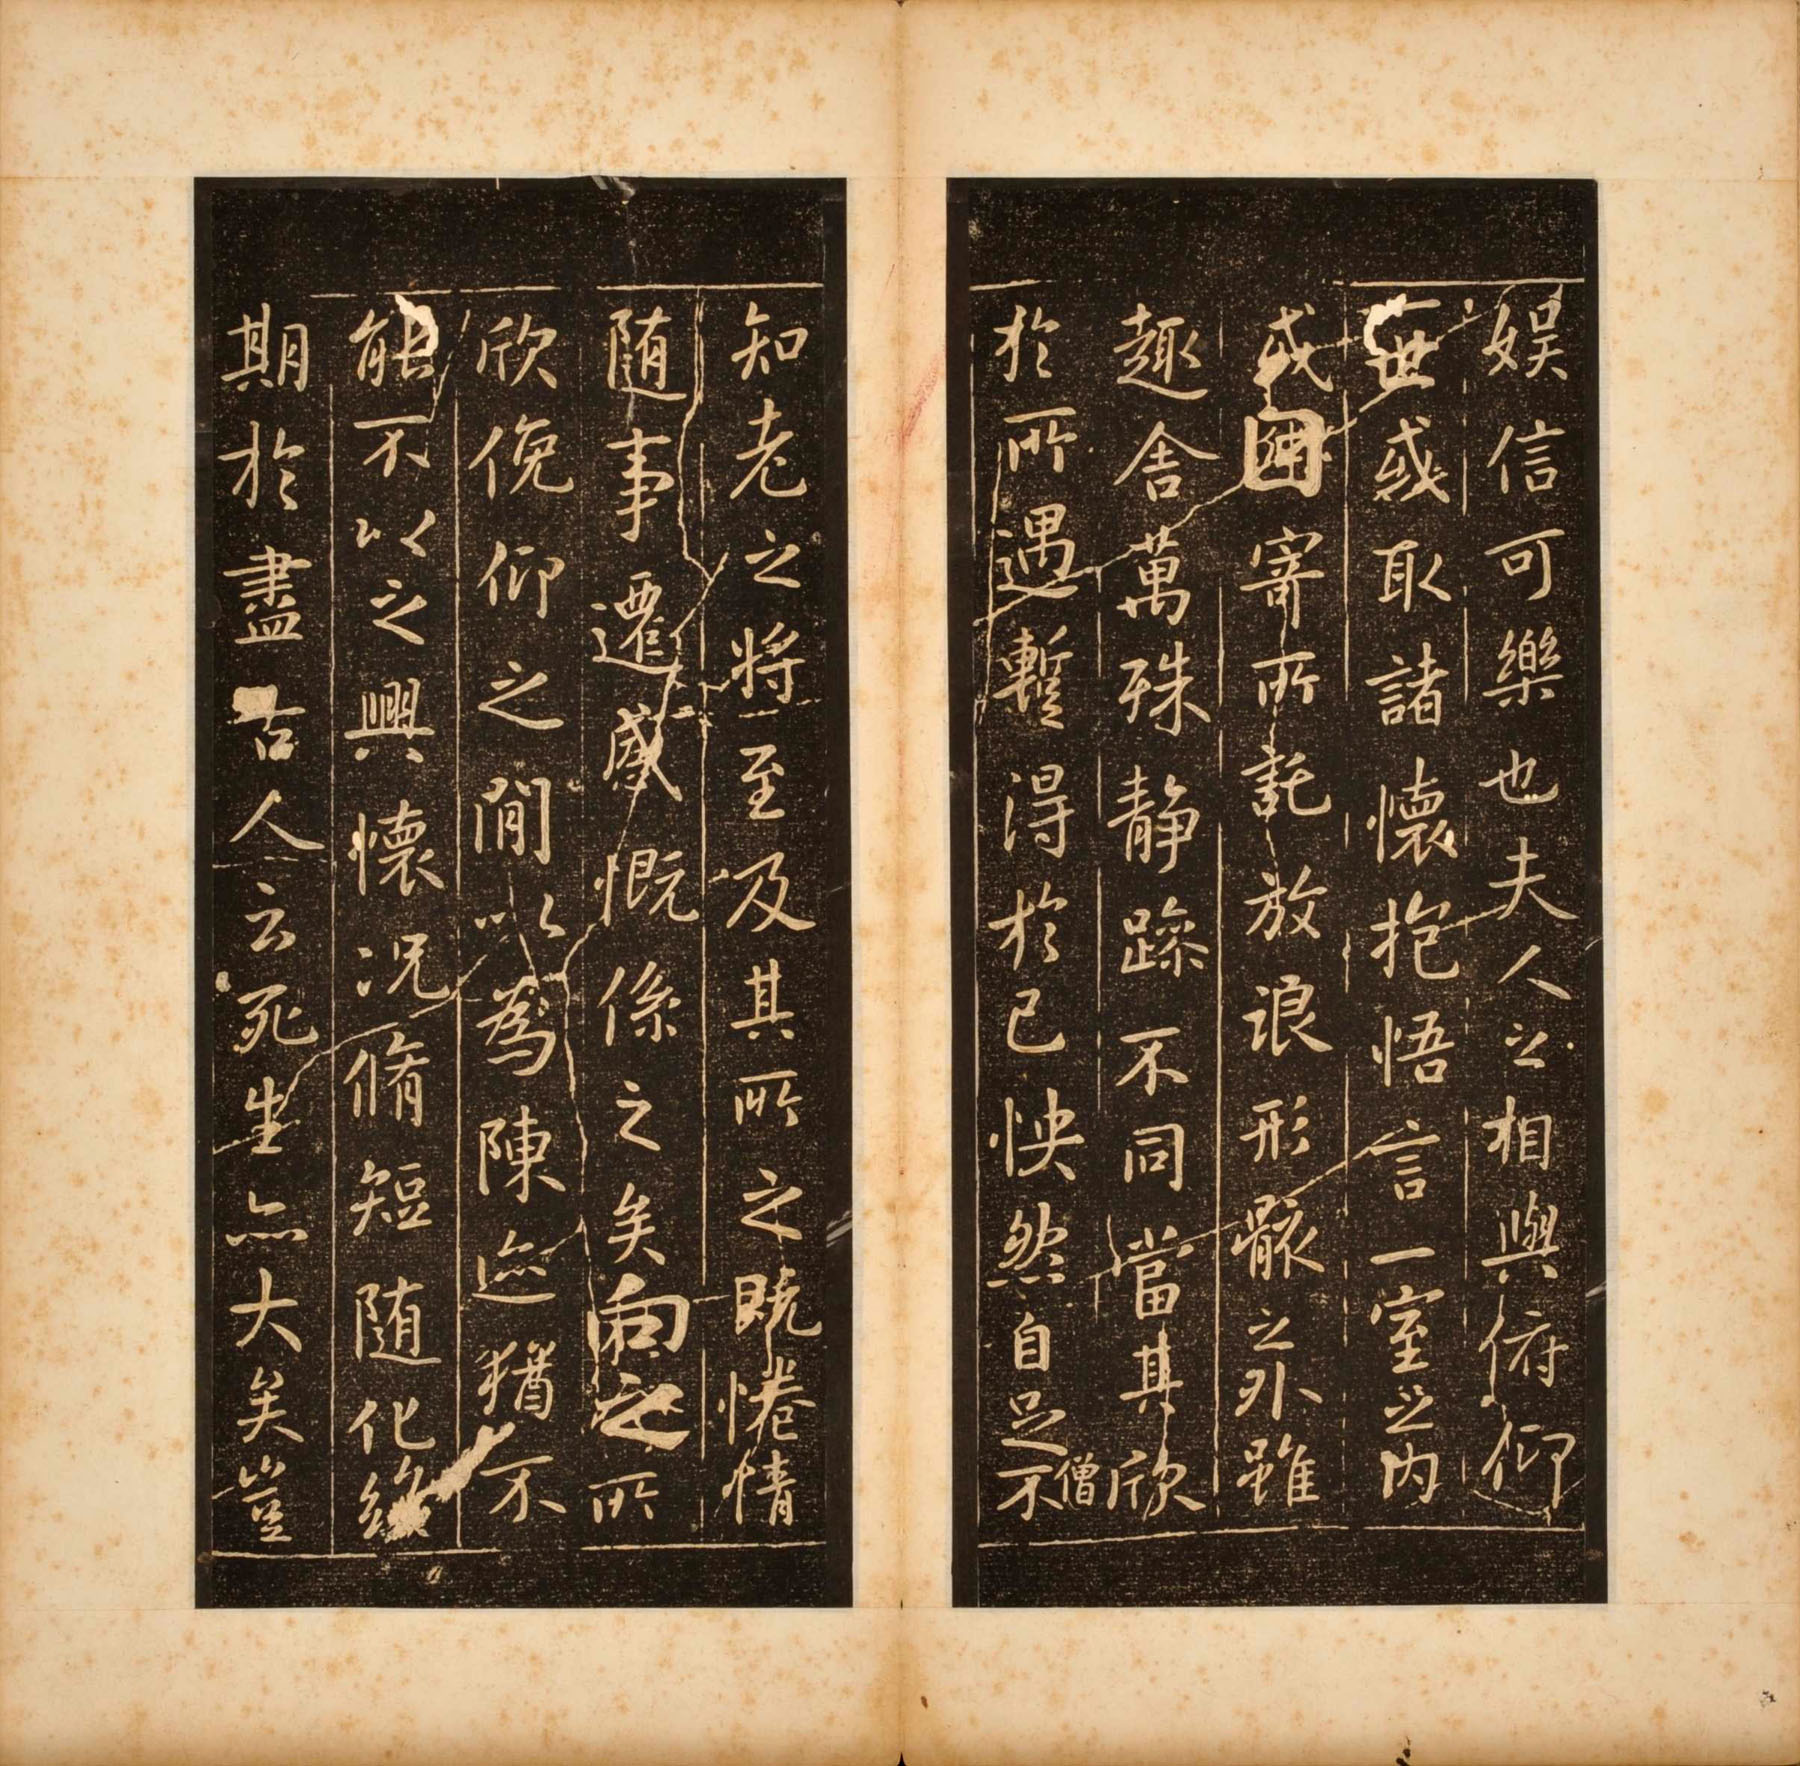 娛信可樂也夫人之相與俯仰
一世或取諸懷抱悟言一室之內
或因寄所託放浪形骸之外雖
趣舍萬殊靜躁不同當其欣
僧
於所遇暫得於己怏然自足不
知老之將至及其所之既惓情
隨事遷感慨係之矣向之所
欣俛仰之閒以為陳迹猶不
能不以之興懷況脩短隨化終
期於盡古人云死生亦大矣豈